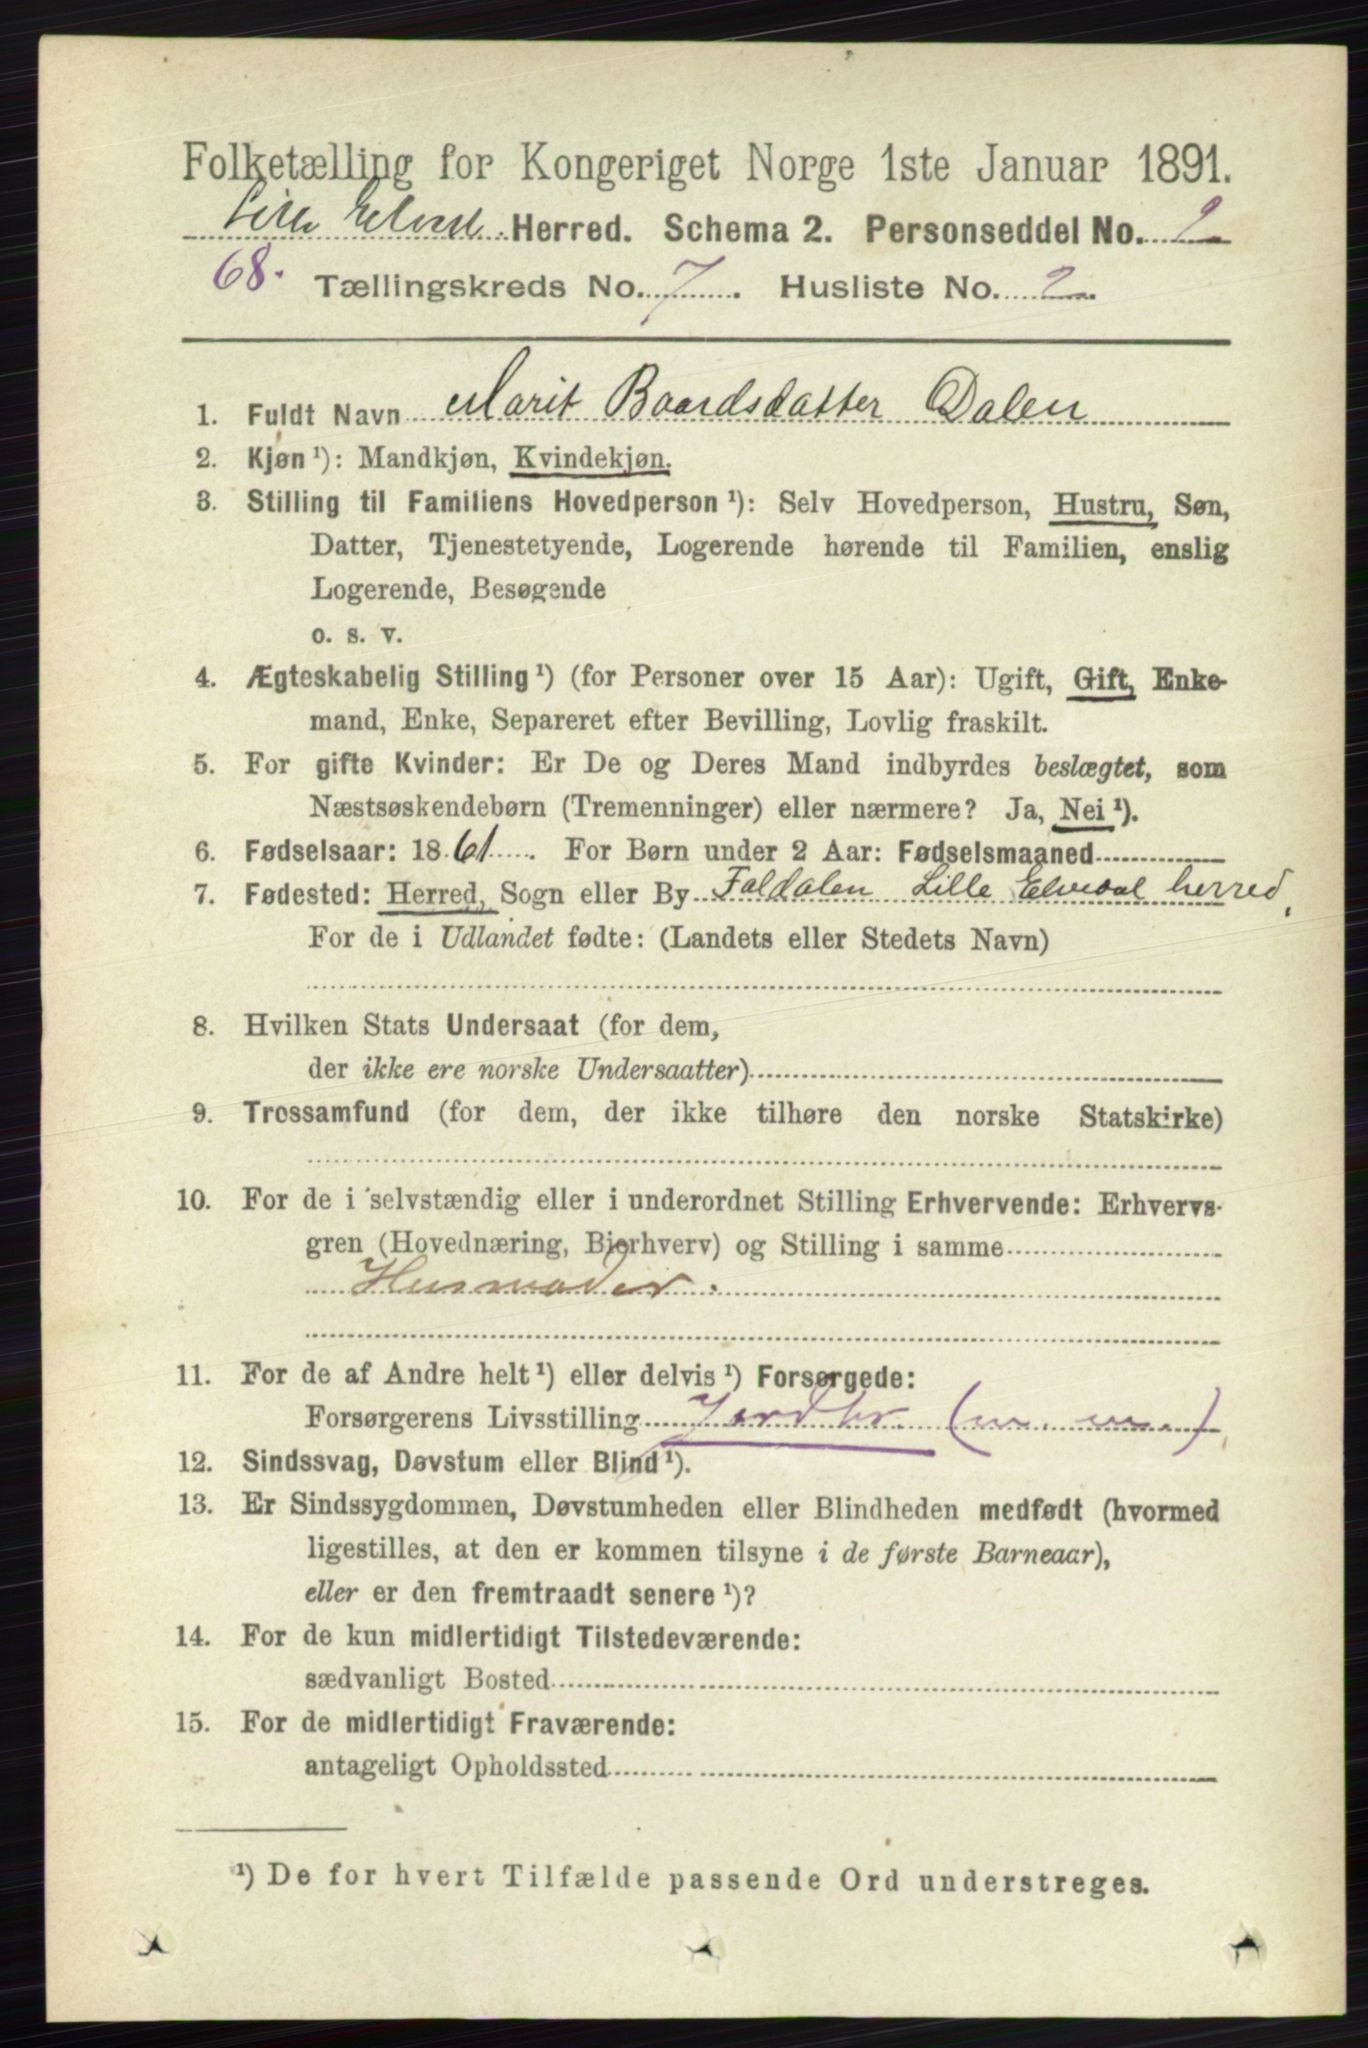 Folketælling for Kongeriget Norge 1ste Januar 1891.
Lille Elvedl Herred. Schema 2. Personseddel No. 2
68. Tællingskreds No. 7. Husliste No. 2.
1. Fuldt Navn Marit Baardsdatter Dalen
2. Kjøn ¹): Mandkjøn, Kvindekjøn.
3. Stilling til Familiens Hovedperson ¹): Selv Hovedperson, Hustru, Søn,
Datter, Tjenestetyende, Logerende hørende til Familien, enslig
Logerende, Besøgende
o. s. v.
4. Ægteskabelig Stilling ¹) (for Personer over 15 Aar): Ugift, Gift, Enke-
mand, Enke, Separeret efter Bevilling, Lovlig fraskilt.
5. For gifte Kvinder: Er De og Deres Mand indbyrdes beslægtet, som
Næstsøskendebørn (Tremenninger) eller nærmere? Ja, Nei ¹).
6. Fødselsaar: 1861. For Børn under 2 Aar: Fødselsmaaned
7. Fødested: Herred, Sogn eller By Foldalen Lille Elvedal herred,
For de i Udlandet fødte: (Landets eller Stedets Navn)
8. Hvilken Stats Undersaat (for dem,
der ikke ere norske Undersaatter)
9. Trossamfund (for dem, der ikke tilhøre den norske Statskirke)
10. For de i selvstændig eller i underordnet Stilling Erhvervende: Erhvervs-
gren (Hovednæring, Bierhverv) og Stilling i samme
Husmoder.
11. For de af Andre helt ¹) eller delvis ¹) Forsørgede:
Forsørgerens Livsstilling Jordbr. (m. m.)
12. Sindssvag, Døvstum eller Blind ¹).
13. Er Sindssygdommen, Døvstumheden eller Blindheden medfødt (hvormed
ligestilles, at den er kommen tilsyne i de første Barneaar),
eller er den fremtraadt senere ¹)?
14. For de kun midlertidigt Tilstedeværende:
sædvanligt Bosted
15. For de midlertidigt Fraværende:
antageligt Opholdssted
¹) De for hvert Tilfælde passende Ord understreges.